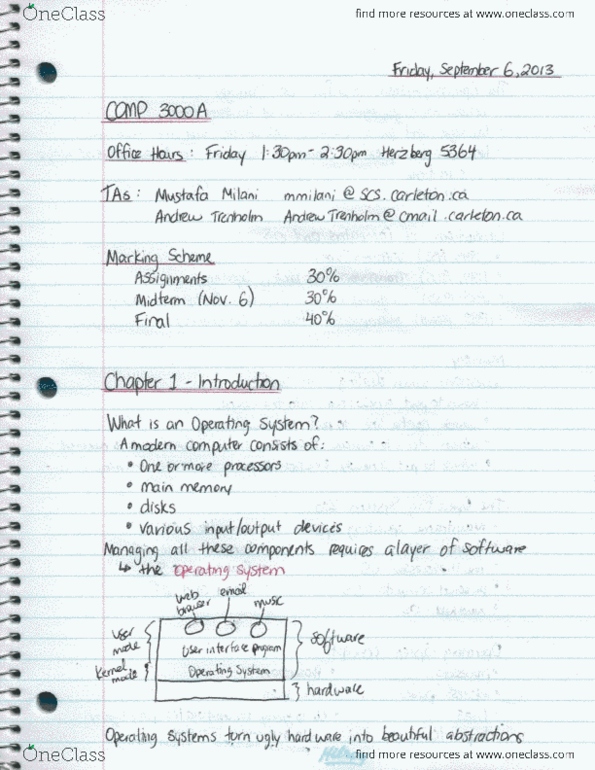 OneClass
find more resources at www.oneclass.com
Friday, September 6, 2013
COMP 3000 A
Office Hours : Friday 1:30pm - 2:30pm Herzberg 5364
TAs : Mustafa Milani mmilani @ scs.carleton.ca
Andrew Trenholm Andrew Trenholm @ cmail.carleton.ca
Marking Scheme
Assignments 30%
Midterm (Nov. 6) 30%
Final 40%
Chapter 1 - Introduction
What is an Operating System?
A modern computer consists of:
• One or more processors
• main memory
• disks
• various input/output devices
Managing all these components requires a layer of software
↳ the operating system
web browser email music
user mode User interface program software
Kernel mode Operating System
hardware
Operating Systems turn ugly hardware into beautiful abstractions
OneClass
find more resources at www.oneclass.com